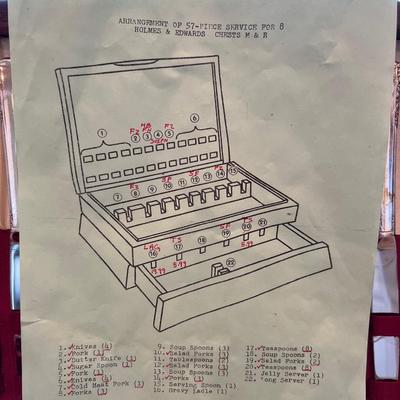 ARRANGEMENT OF 57-PIECE SERVICE FOR 8
HOLMES & EDWARDS CHESTS M & R
1. Knives (4)
2. Fork (1)
3. Butter Knife (1)
4. Sugar Spoon (1)
5. Fork (1)
6. Knives (4)
7. Cold Meat Fork (1)
8. Forks (3)
9. Soup Spoons (3)
10. Salad Forks (3)
11. Tablespoons
12. Salad Forks
13. Soup Spoons (3)
14. Forks
15. Serving Spoon (1)
16. Gravy Ladle (1)
17. Teaspoons (8)
18. Soup Spoons (2)
19. Salad Forks (2)
20. Teaspoons (8)
21. Jelly Server (1)
22. Tong Server (1)